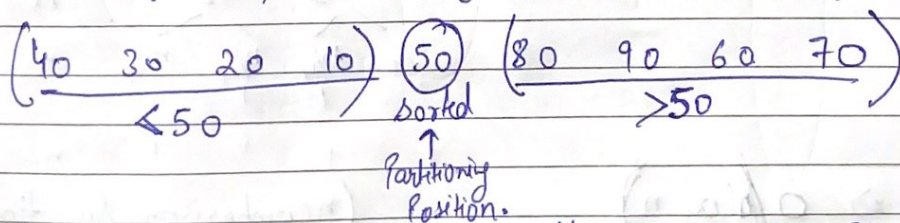 (40 30 20 10) 50 (80 90 60 70)
<50 sorted >50
↑
Partitioning
Position.